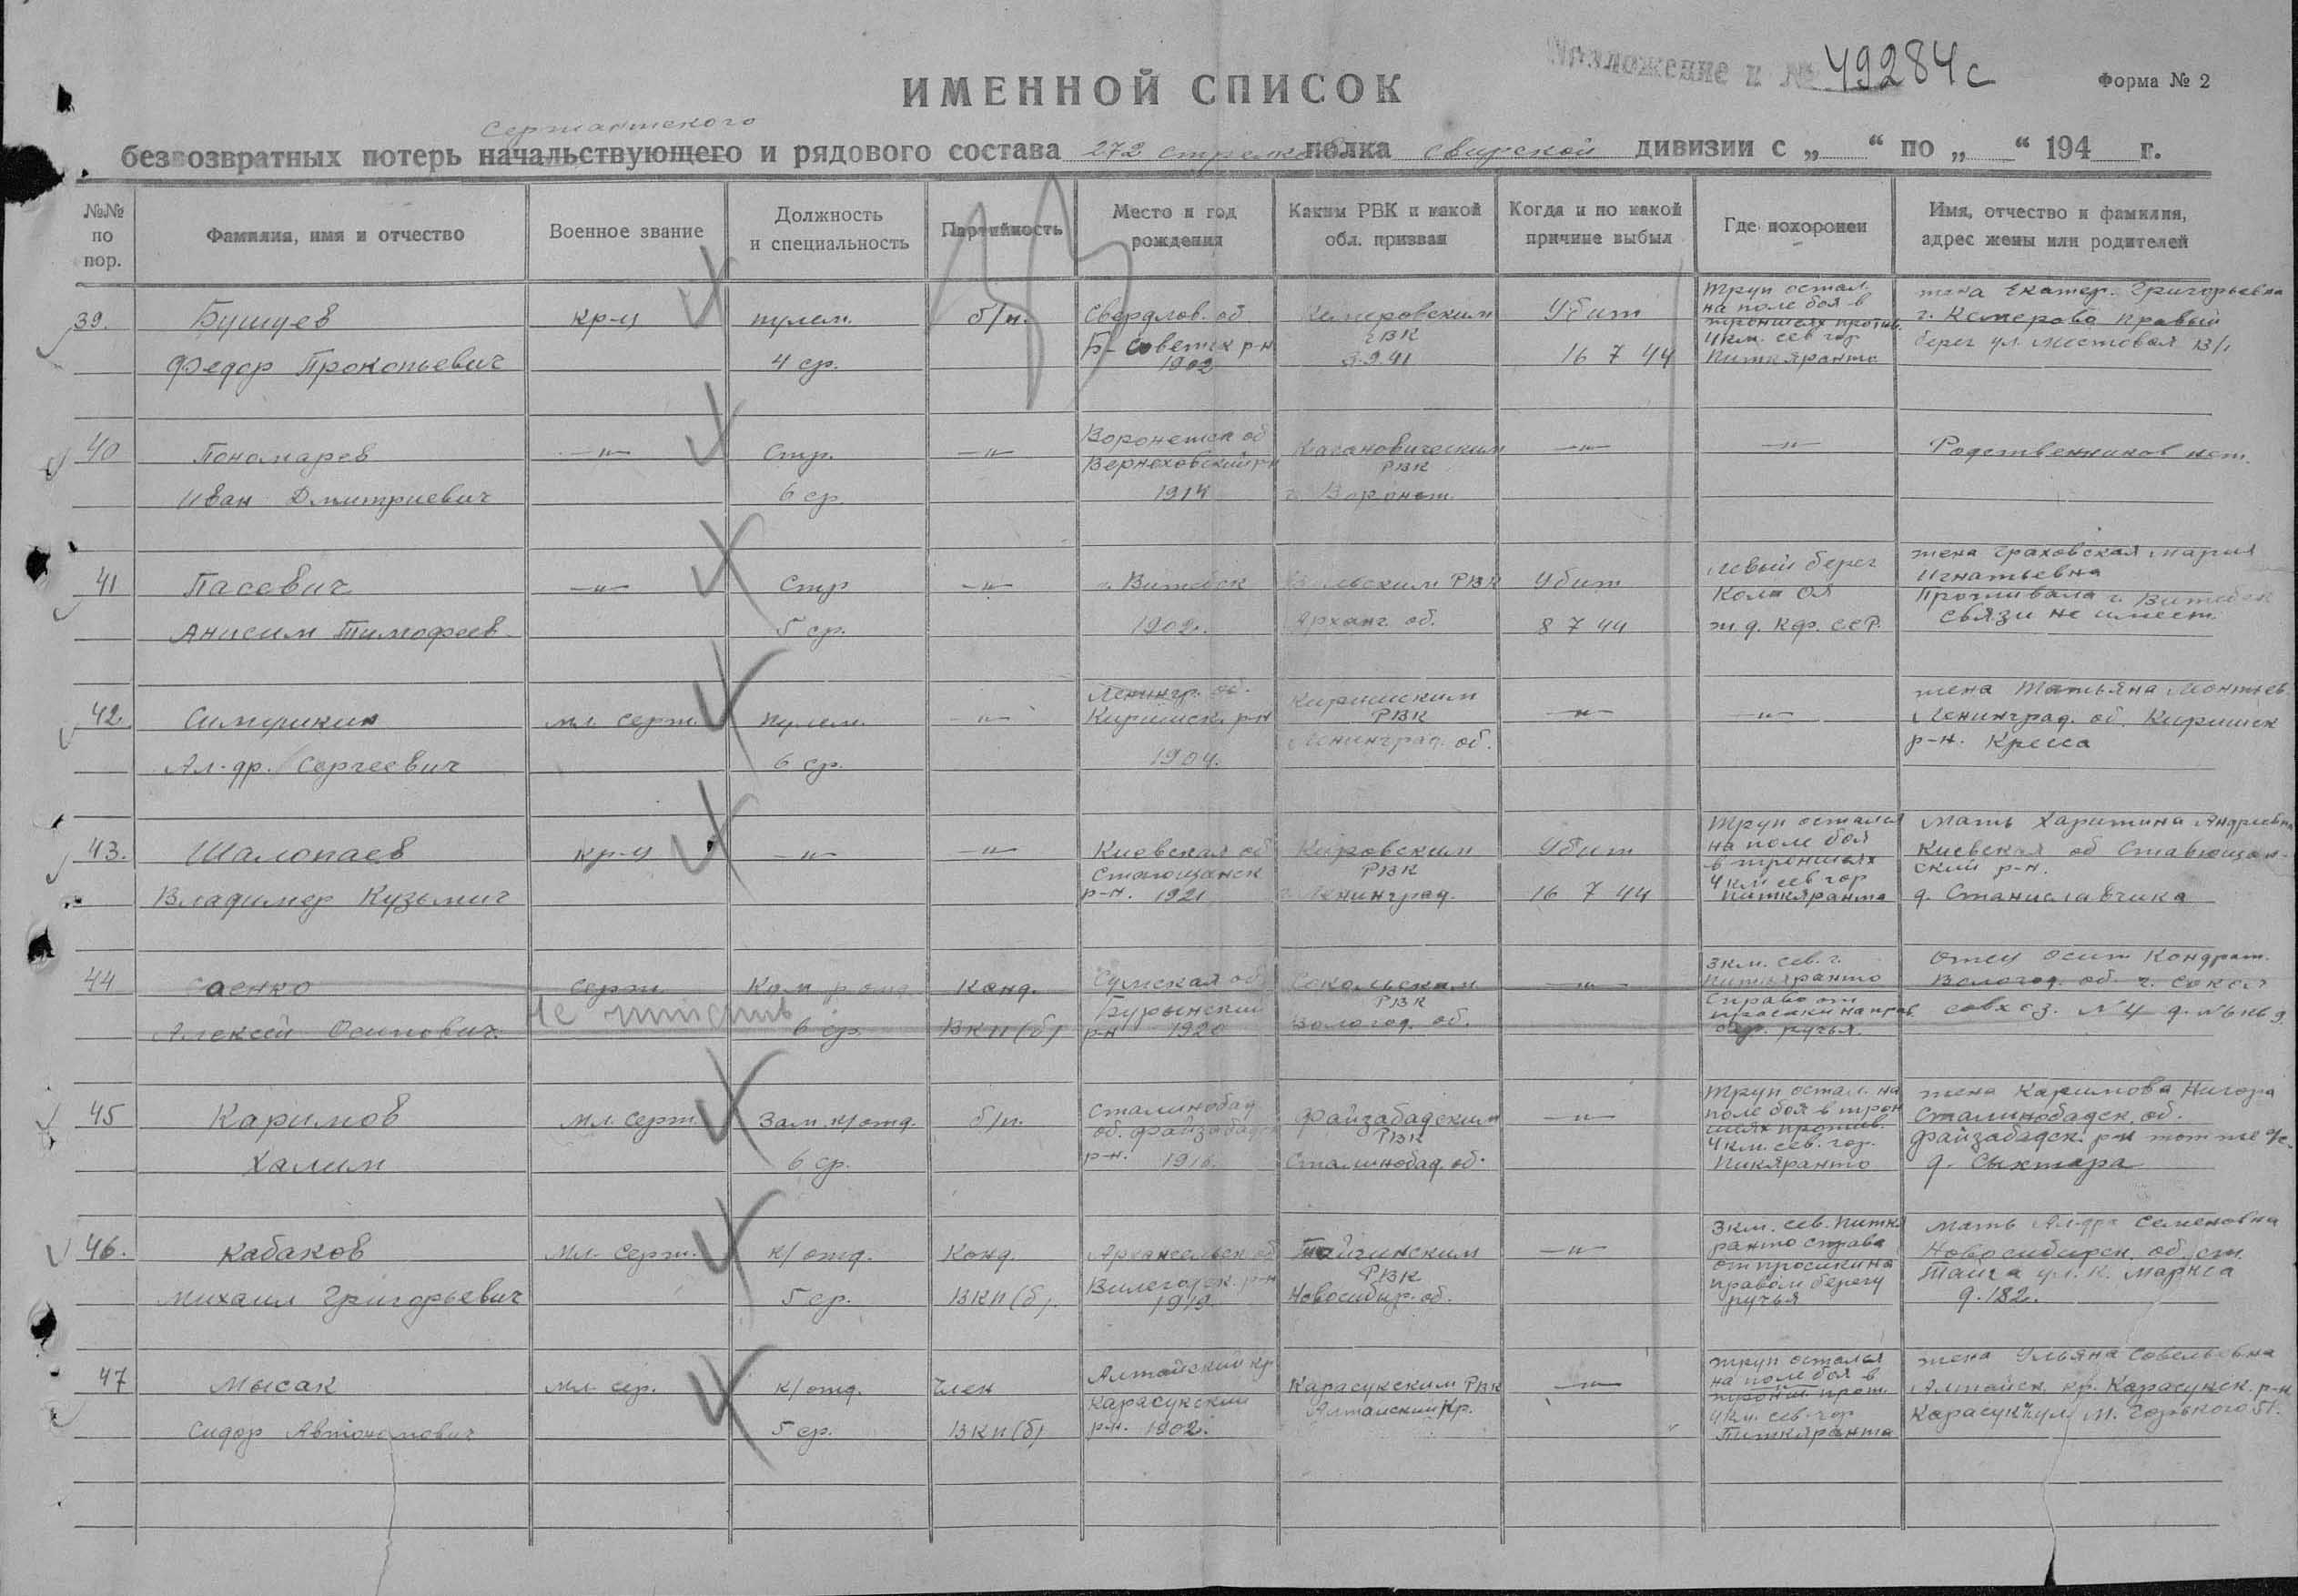 Приложение к № 49284с
Форма № 2
ИМЕННОЙ СПИСОК
Сержантского
безвозвратных потерь начальствующего и рядового состава 272 стрелков. полка Свирской дивизии с „ “ по „ “ 194 г.
№№ по пор. Фамилия, имя и отчество Военное звание Должность и специальность Партийность Место и год рождения Каким РВК и какой обл. призван Когда и по какой причине выбыл Где похоронен Имя, отчество и фамилия, адрес жены или родителей
39. Бушуев Федор Прокопьевич
кр-ц
пулем. 4 ср.
б/п.
Свердлов. об Б-Советск р-н 1902
Кемеровским ГВК 3.9.41
Убит 16 7 44
Труп остал. на поле боя в траншеях против. 4 км. сев гор Питкяранто
жена Екатер. Григорьевна г. Кемерово правый берег ул. Мостовая 13/1
40 Пономарев Иван Дмитриевич
—"—
Стр. 6 ср.
—"—
Воронежск об 1914
Кагановическим РВК г. Воронеж.
—"—
—"—
Родственников нет.
41 Пасевич Анисим Тимофеев.
—"—
Стр 5 ср.
—"—
г. Витебск 1902.
РВК Арханг. об.
Убит 8 7 44
Левый берег ж.д. КФ. ССР.
жена Граховская Мария Игнатьевна Проживала г. Витебск связи не имеет.
42. Симушкин Ал-др. Сергеевич
мл. серж.
пулем. 6 ср.
—"—
Ленингр. об. Киришск. р-н 1904.
Киришским РВК Ленинград. об.
—"—
—"—
жена Татьяна Леонтьев. Ленинград. об. Киришск р-н. Кресса
43. Шалопаев Владимер Кузьмич
кр-ц
—"—
—"—
Киевская об Ставищанск р-н. 1921
Кировским РВК г. Ленинград.
Убит 16 7 44
Труп остался на поле боя в траншеях 4 км сев гор Питкяранта
Мать Харитина Андреевна Киевская об Ставющан-ский р-н. д. Станиславчика
44 Саенко Алексей Осипович.
серж.
не писать
6 ср.
Канд. ВКП(б)
Сумская об Бурынский р-н 1920
Сокольским РВК Вологод. об.
—"—
3 км. сев. г. Питкяранто Справа от просеки на прав. бер. ручья.
Отец Осип Кондрат. Вологод. об. г. Сокол совхоз. №4
45 Каримов Халим
мл. серж.
Зам. к/отд. 6 ср.
б/п.
Сталинобад об. Файзабадск р-н. 1916.
Файзабадским РВК Сталинобад. об.
—"—
Труп остал. на поле боя в тран шеях против. 4 км. сев. гор. Пикяранто
жена Каримова Нигора Сталинобадск. об. Файзабадск. р-н тот же с/с. д. Сыхтара
46. Кабаков Михаил Григорьевич
мл. серж.
к/отд. 5 ср.
Конд. ВКП(б).
Архангельск об Вилегодск. р-н 1919.
Тайгинским РВК Новосибир. об.
—"—
3 км. сев. Питкя ранто справа от просики на правом берегу ручья
Мать Ал-дра Семеновна Новосибирск. об. ст. Тайга ул. К. Маркса д. 182.
47 Мысак Сидор Автономович
мл. сер.
к/отд. 5 ср.
член ВКП(б)
Алтайский кр Карасукский р-н. 1902.
Карасукским РВК Алтайский кр.
—"—
Труп остался на поле боя в транш. прот. 4 км. сев. гор Питкяранта
жена Ульяна Савельевна Алтайск. кр. Карасукск. р-н Карасук ул. М. Горького 51.